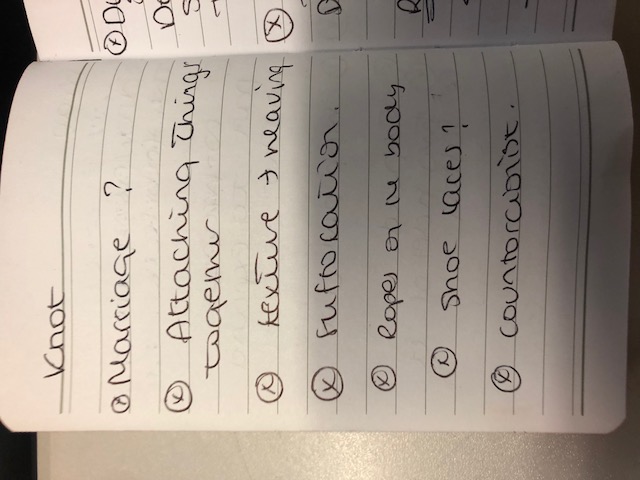 Knot
Marriage ?
Attaching Things
together
texture + weaving
suffocation.
Ropes on the body
Shoe laces!
contortionist.